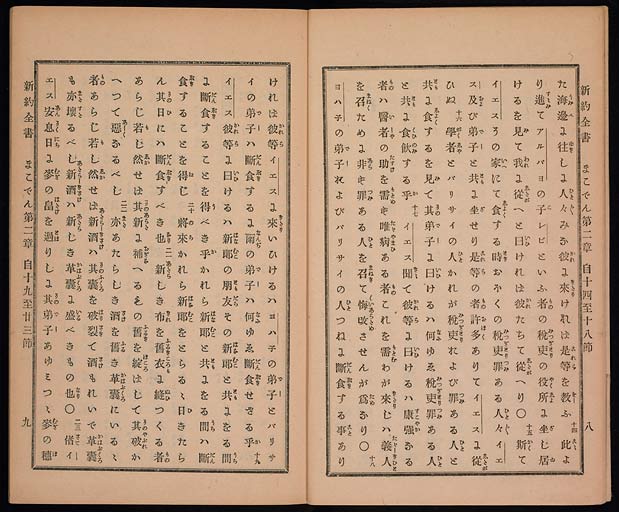 新約全書 まこでん第二章 自十四至十八節 八
た海邊よ往しよ人々みな彼よ來ければ是等を教ふ 此よ
り進てアルパヨの子レビといふ者の稅吏の役所よ坐し居
けるを見て我よ從へと曰ければ彼たちて從へり〇 斯て
イエスその家にて食する時おほくの稅吏罪ある人々イエ
ス及び弟子と共よ坐せり是等の者許多ありてイエスよ從
ひぬ 學者とパリサイの人かれが稅吏および罪ある人と
共よ食するを見て其弟子よ曰けるハ何ゆゑ稅吏罪ある人
と共よ食飮する乎 イエス聞て彼等よ曰けるハ康強なる
者ハ醫者の助を需ず唯病ある者これを需わが來しハ義人
を召ためよ非ず罪ある人を召て悔改させんが爲なり〇
ヨハネの弟子およびパリサイの人つねよ斷食する事あり
ければ彼等イエスよ來いひけるハヨハネの弟子とパリサ
イの弟子ハ斷食するよ爾の弟子ハ何ゆゑ斷食せざる乎
イエス彼等よ曰けるハ新郎の朋友その新郎と共よをる間
よ斷食することを得べき乎かれら新郎と共よをる間ハ斷
食することを得じ 將來かれら新郎をとらるゝ日きたら
ん其日にハ斷食すべき也 新しき布を舊衣よ縫つくる者
あらじ若し然せば其新よ補へるもの舊を綻ばして其破か
へつて惡なるべし 亦あたらしき酒を舊き革囊にいるゝ
者あらじ若し然せば新酒ハ其囊を破裂て酒もれいで革囊
も亦壞るべし新酒ハ新しき革囊よ盛べきもの也〇 偖イ
エス安息日よ麥の畠を過りしよ其弟子あゆミつゝ麥の穗
新約全書 まこでん第二章 自十九至廿三節 九